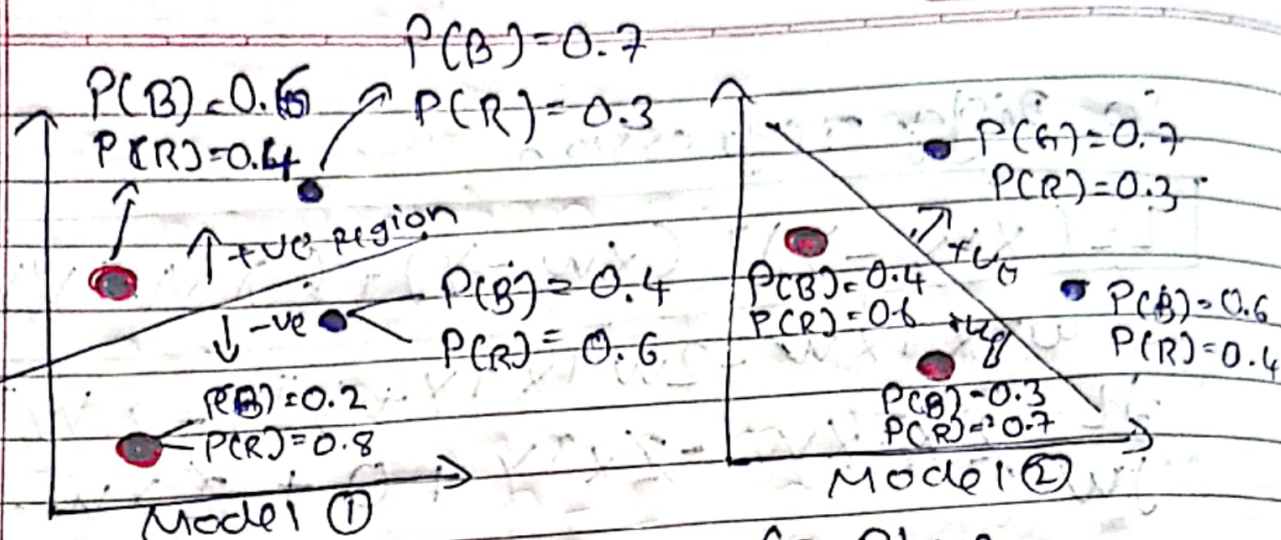 P(B)=0.7
P(R)=0.3
P(B)=0.6
P(R)=0.4
+ve region
-ve
P(B)=0.4
P(R)=0.6
P(B)=0.2
P(R)=0.8
Model ①
P(B)=0.7
P(R)=0.3
+ve
P(B)=0.4
P(R)=0.6
P(B)=0.6
P(R)=0.4
P(B)=0.3
P(R)=0.7
Model ②